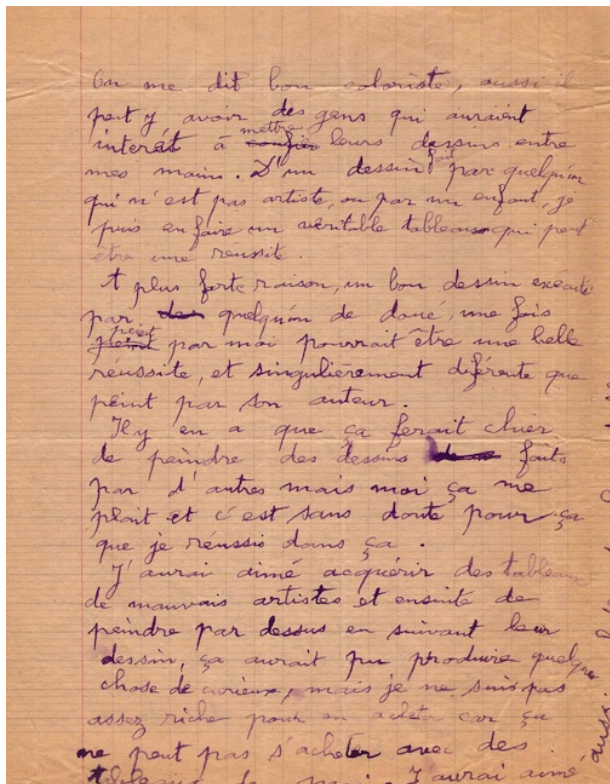 On me dit bon coloriste, aussi il
peut y avoir des gens qui auraient
intérêt à mettre leurs dessins entre
mes mains. D'un dessin fait par quelqu'un
qui n'est pas artiste, ou par un enfant, je
puis en faire un véritable tableau qui peut
être une réussite.
A plus forte raison, un bon dessin exécuté
par quelqu'un de doué, une fois
peint par moi pourrait être une belle
réussite, et singulièrement diférente que
peint par son auteur.
Il y en a que ça ferait chier
de peindre des dessins faits
par d'autres mais moi ça me
plait et c'est sans doute pour ça
que je réussis dans ça.
J'aurai aimé acquérir des tableaux
de mauvais artistes et ensuite de
peindre par dessus en suivant leur
dessin, ça aurait pu produire quelque
chose de curieux, mais je ne suis pas
assez riche pour en acheter car ça
ne peut pas s'acheter avec des
J'aurai aimé
aussi